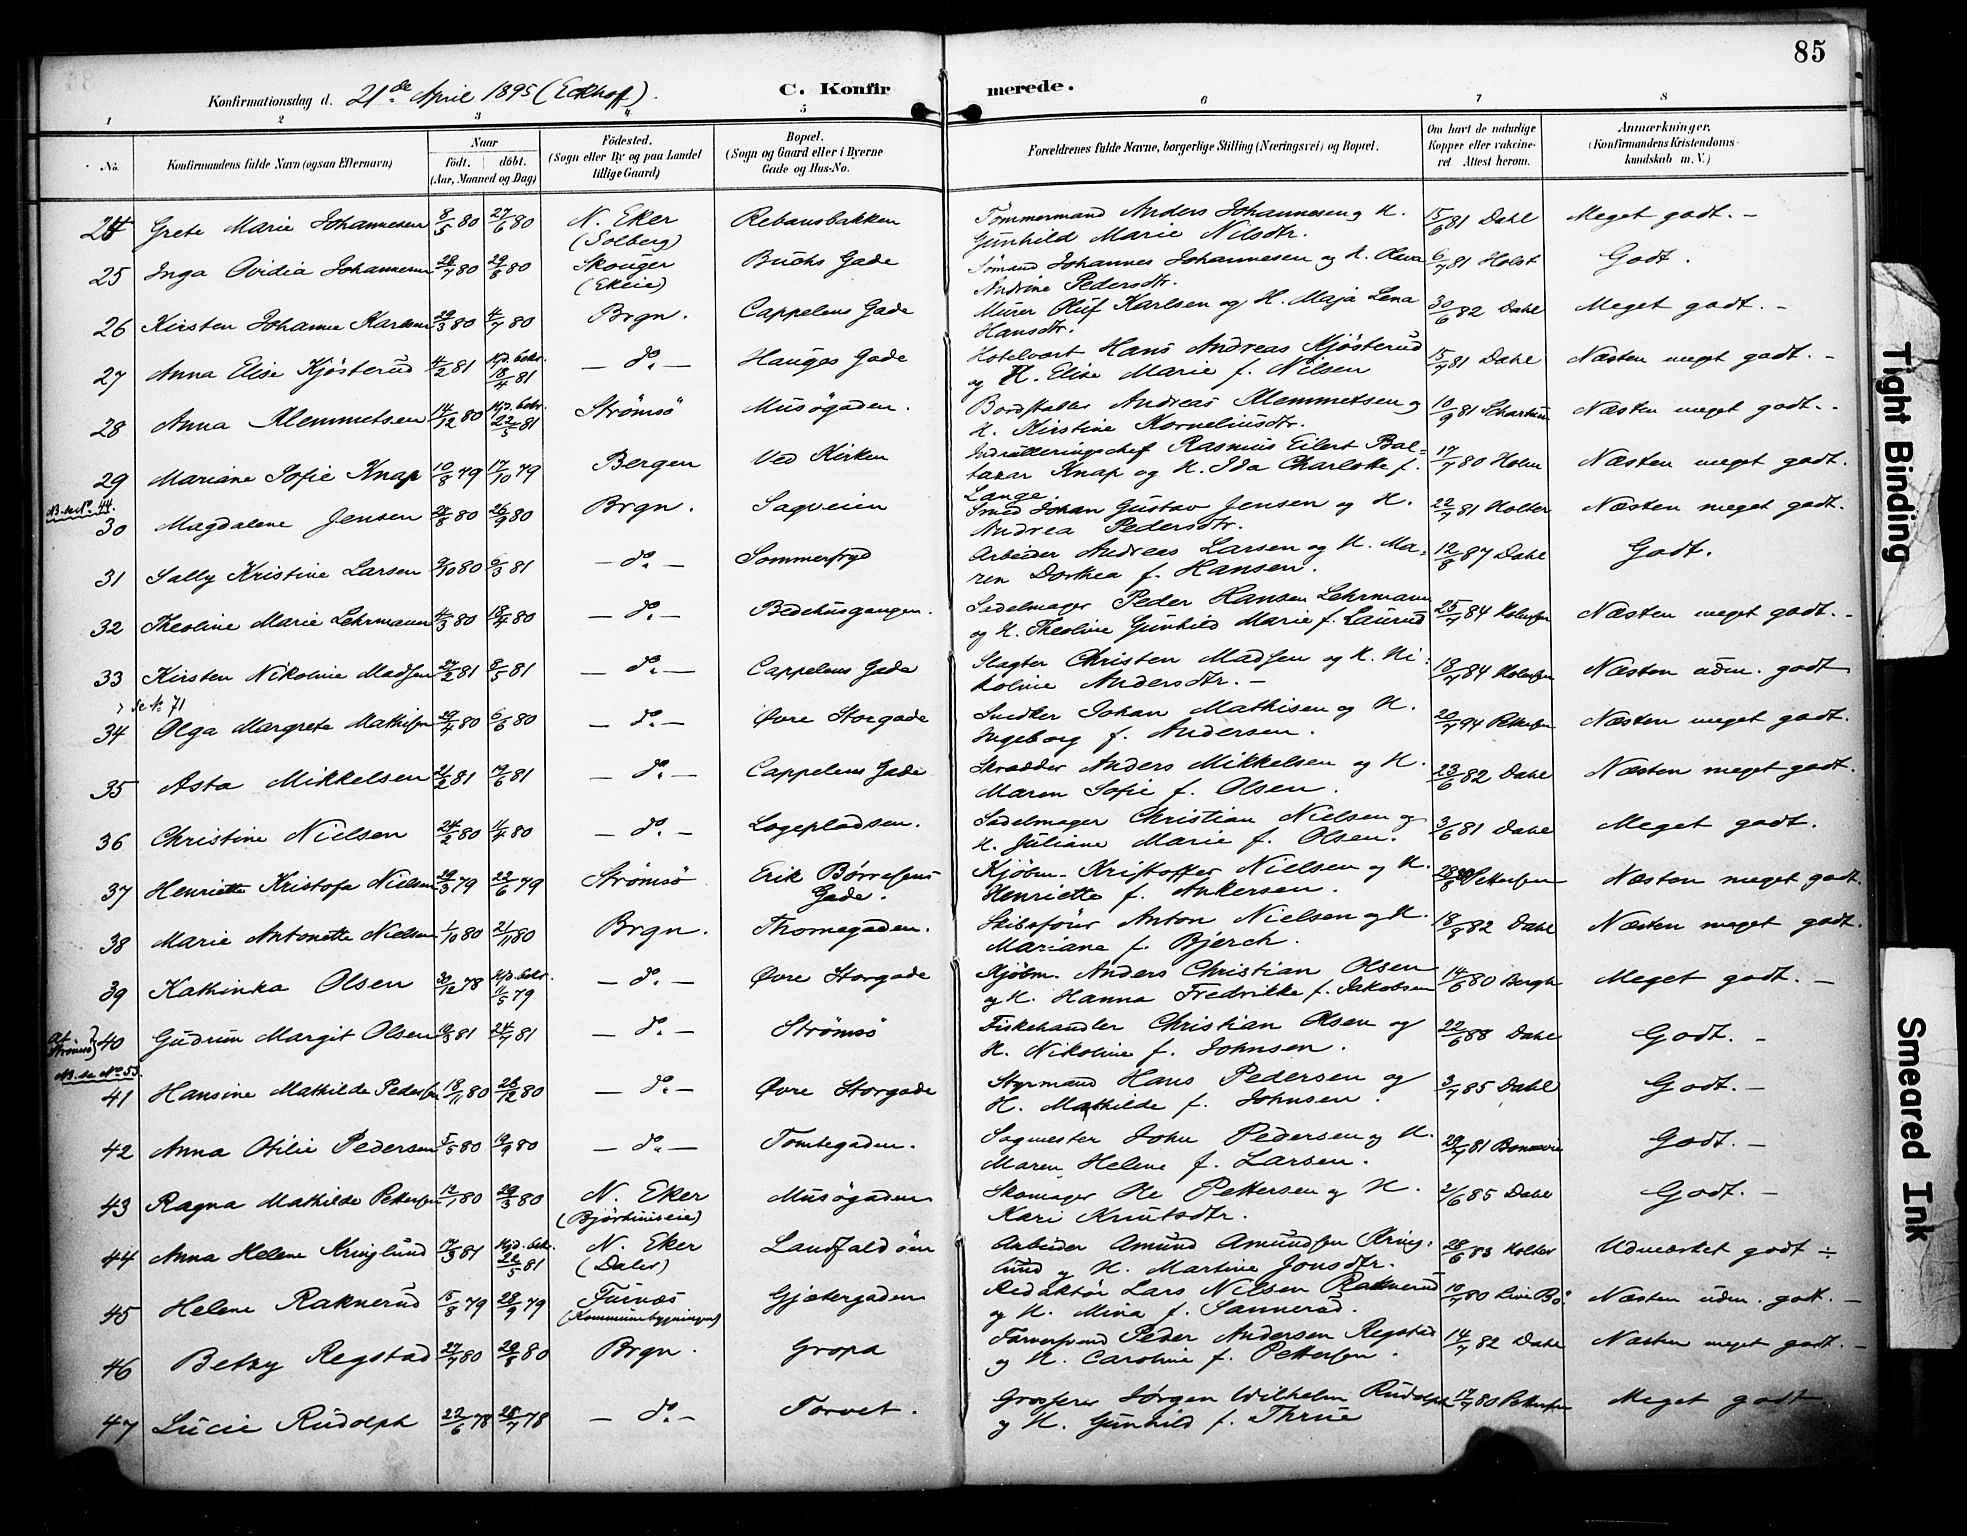 85
Konfirmationsdag d. 21de April 1895 (Eckhof).
C. Konfirmerede.
1 2 3 4 5 6 7 8
No. Konfirmandens fulde Navn (ogsaa Efternavn) Naar födt. döbt. (Aar, Maaned og Dag) Födested. (Sogn eller By og paa Landet tillige Gaard) Bopæl. (Sogn og Gaard eller i Byerne Gade og Hus-No. Forældrenes fulde Navne, borgerlige Stilling (Næringsvei) og Bopæl. Om havt de naturlige Kopper eller vakcineret Attest herom. Anmærkninger. (Konfirmandens Kristendomskundskab m. V.)
24 Grete Marie Johannesen 8/5 80 27/6 80 N. Eker (Solberg) Rebansbakken Tömmermand Anders Johannesen og H. Gunhild Marie Nilsdtr. 15/6 81 Dahl Meget godt. -
25 Inga Ovidia Johannesen 26/7 80 29/8 80 Skouger (Ekeie) Buchs Gade Sömand Johannes Johannesen og H. Oleva Andrine Pedersdtr. 6/7 81 Holst Godt.
26 Kirsten Johanne Karlsen 29/3 80 4/7 80 Brgn. Cappelens Gade Murer Oluf Karlsen og H. Maja Lena Hansdtr. 30/6 82 Dahl Meget godt. -
27 Anna Elise Kjösterud 4/2 81 Hjd. bekr. 18/4 81 - do. - Hauges Gade Hotelvært Hans Andreas Kjösterud og H. Elise Marie f. Nilsen 15/7 81 Dahl Næsten meget godt. -
28 Anna Klemmetsen 14/12 80 Hjd. bekr. 22/5 81 Strömsö Musögaden. Bordstabler Andreas Klemmetsen og H. Kirstine Korneliusdtr. 10/9 81 Næsten meget godt. -
29 Mariane Sofie Knap 10/8 79 17/10 79 Bergen Ved Kirken Indrulleringschef Rasmus Eilert Baltazar Knap og H. Ida Charlotte f. Lange 17/7 80 Holm Næsten meget godt.
NB. se No. 44.
30 Magdalene Jensen 24/8 80 26/9 80 Brgn. Sagveien Smed Johan Gustav Jensen og H. Andrea Pedersdtr. 22/7 81 Holter Næsten meget godt.
31 Sally Kristine Larsen 9/10 80 6/3 81 - do. - Sommerfryd Arbeider Andreas Larsen og H. Maren Dorthea f. Hansen. 12/8 87 Dahl Godt.
32 Theoline Marie Lehrmann 4/3 80 18/4 80 - do. - Bedehusgangen. Sadelmager Peder Hansen Lehrmann og H. Theoline Gunhild Marie f. Laurud 25/7 84 Næsten meget godt. -
33 Kirsten Nikoline Madsen 27/2 81 8/5 81 - do. - Cappelens Gade Slagter Christen Madsen og H. Nikoline Andersdtr. - 18/7 84 Næsten udm. godt
se No 71
34 Olga Margrete Mathisen 29/4 80 6/6 80 - do. - Øvre Storgade Snedker Johan Mathisen og H. Ingeborg f. Andersen. 20/7 94 Pettersen Næsten meget godt.
35 Asta Mikkelsen 21/2 81 19/6 81 - do. - Cappelens Gade Skrædder Anders Mikkelsen og H. Maren Sofie f. Olsen. 23/6 82 Dahl Næsten meget godt.
36 Christine Nielsen 24/2 80 11/4 80 - do. - Logepladsen. Sadelmager Christian Nielsen og H. Juliane Marie f. Olsen. 3/6 81 Dahl Meget godt.
37 Henriette Kristofa Nielsen 29/3 79 22/6 79 Strömsö Erik Börresens Gade. Kjöbm. Kristoffer Nielsen og H. Henriette f. Ankersen. Pettersen Næsten meget godt.
38 Marie Antonette Nielsen 1/10 80 21/11 80 Brgn. Thornegaden. Skibsförer Anton Nielsen og H. Mariane f. Bjerch. 18/8 82 Dahl Næsten meget godt.
39 Kathinka Olsen 30/12 78 Hjd. bekr. 11/5 79 - do. - Øvre Storgade Kjöbm. Anders Christian Olsen og H. Hanna Fredrikke f. Jakobsen 14/6 80 Bergh Meget godt. -
40 Gudrun Margit Olsen 81 24/7 81 - do. - Strömsö Fiskehandler Christian Olsen og H. Nikoline f. Johnsen. 22/6 88 Dahl Godt. -
NB. se No 55.
41 Hansine Mathilde Pedersen 18/11 80 26/12 80 - do. - Øvre Storgade Styrmand Hans Pedersen og H. Mathilde f. Johnsen. 3/7 85 Dahl Godt. -
42 Anna Otilie Pedersen 5/5 80 19/9 80 - do. - Tomtegaden. Sagmester John Pedersen og H. Maren Helene f. Larsen. 29/7 81 Godt. -
43 Ragna Mathilde Pettersen 12/1 80 29/3 80 N. Eker (Björkuniseie) Musögaden Skomager Ole Pettersen og H. Kari Knutsdtr. 2/6 85 Dahl Godt. -
44 Anna Helene Kringlund 17/3 81 Hjd. bekr. 22/5 81 N. Eker (Daler) Landfaldöen Arbeider Amund Amundsen Kringlund og H. Martine Jonsdtr. 28/6 83 Holter Udmærket godt
45 Helene Raknerud 15/8 79 28/9 79 Furnæs (Kommunebygningen) Gjætergaden Redaktör Lars Nielsen Raknerud og H. Mina f. Sannerud. 10/7 80 Næsten udm. godt. -
46 Betsy Regstad 27/7 80 29/8 80 Brgn. Gropa Farversvend Peder Andersen Regstad og H. Caroline f. Pettersen. 14/7 82 Dahl Næsten meget godt. -
47 Lucie Rudolph 22/6 78 28/7 78 - do. - Torvet. Grosserer Jörgen Wilhelm Rudolph og H. Gunhild f. Thrue 17/7 80 Pettersen Meget godt
Tight Binding
Smeared Ink